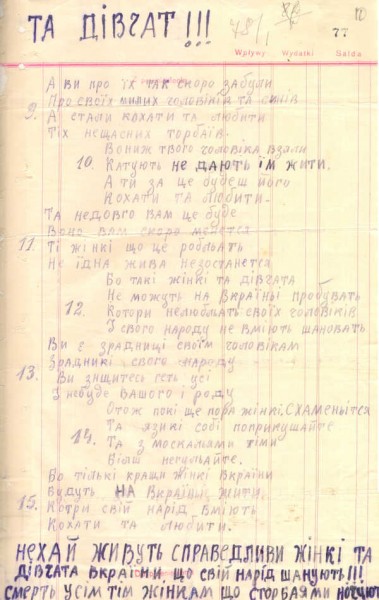 ТА ДІВЧАТ!!!
77
Wpływy Wydatki Saldo
А ви про їх так скоро забули
9. Про своїх милих головіків та синів
А стали кохати та любити
Тіх нещасних торбаїв.
Вониж твого головіка взяли
10. Катують не дають їм жити.
А ти за це будеш його
Кохати та любити.
Та недовго вам це буде
Воно вам скоро
11. Ті жінкі що це робльать
Не їдна жива незостанетса
Бо такі жінкі та дівчата
Не можуть на Вкраїньі пробувать
12. Котори нелюбльать своїх головіків
І свого народу не вміють шановать
Ви є зрадниці своїм головікам
Зрадникі свого народу
13. Ви знщитесь геть усі
І небуде вашого і роду
Отож покі ще пора жінкі, схаменьітса
Та язикі собі поприкушайте
14. Та з москальами тіми
Більш негульайте.
Бо тількі кращи жінкі Вкраїни
Будуть на Вкраїньі жити.
15. Котри свій нарід вміють
Кохати та любити.
Нехай живуть справедливи жінкі та
дівчата Вкраїни що свій нарід шанують!!!
Смерть усім тім жінкам що сторбаями ночують